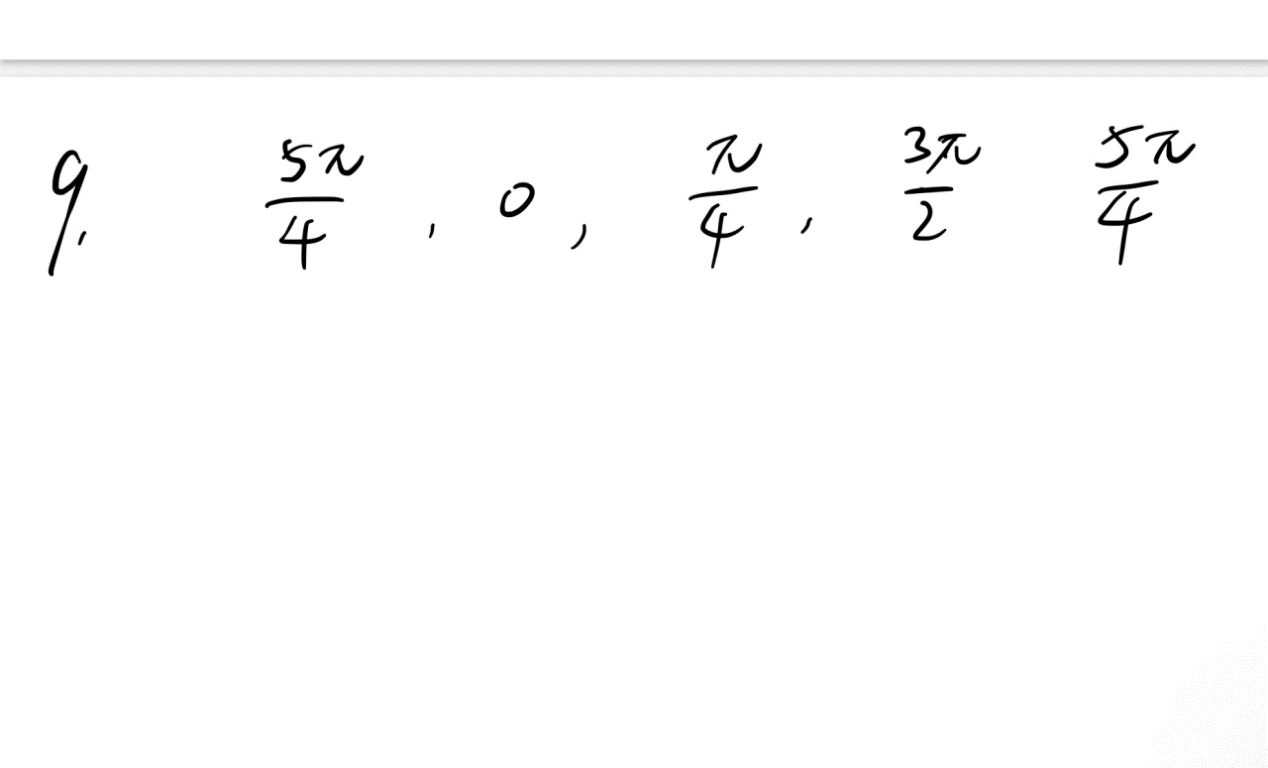 9, 5π/4 , 0 , π/4 , 3π/2 5π/4